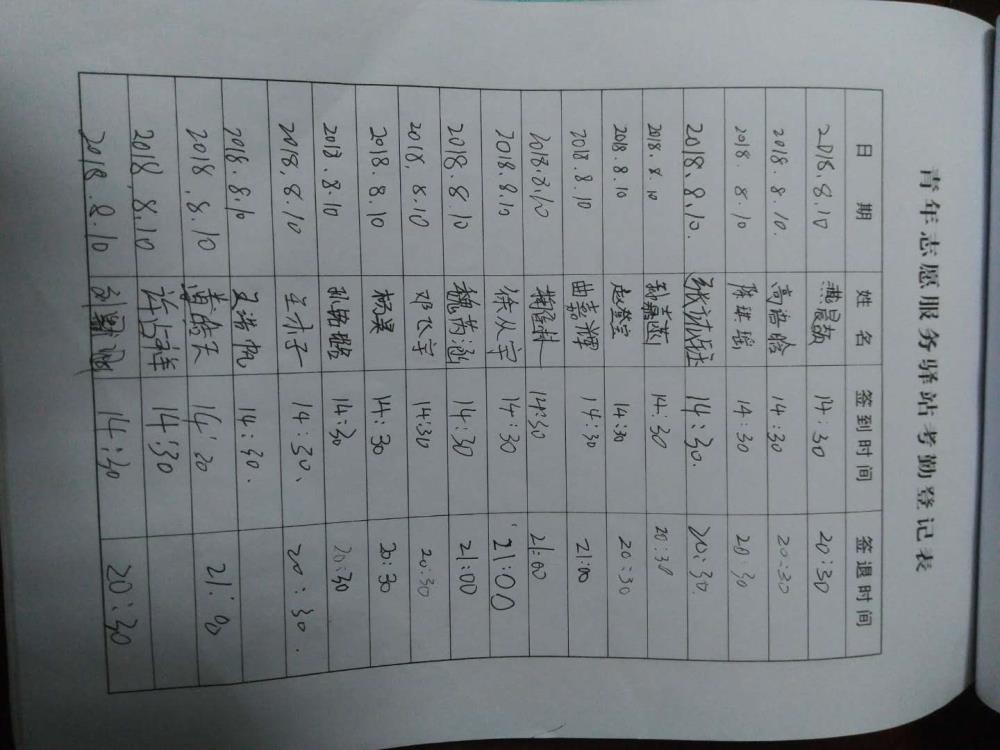 青年志愿服务驿站考勤登记表
日期 姓名 签到时间 签退时间
2018.8.10 燕晨颖 14:30 20:30
2018.8.10. 高语晗 14:30 20:30
2018.8.10 陈琪瑶 14:30 20:30
2018.8.10. 14:30. 20:30.
2018.8.10 孙嘉蕊 14:30 20:30
2018.8.10 赵堂宝 14:30 20:30
2018.8.10 曲嘉辉 14:30 21:00
2018.8.10 14:30 21:00
2018.8.10 徐从宇 14:30 21:00
2018.8.10 魏芮涵 14:30 21:00
2018.8.10 邓飞宇 14:30 20:30
2018.8.10 杨昊 14:30 20:30
2018.8.10 14:30 20:30
2018.8.10 兰子子 14:30. 20:30.
2018.8.10 王浩帆 14:30.
2018.8.10 黄舜天 14:20 21:00
2018.8.10 14:30
2018.8.10 14:30 20:30